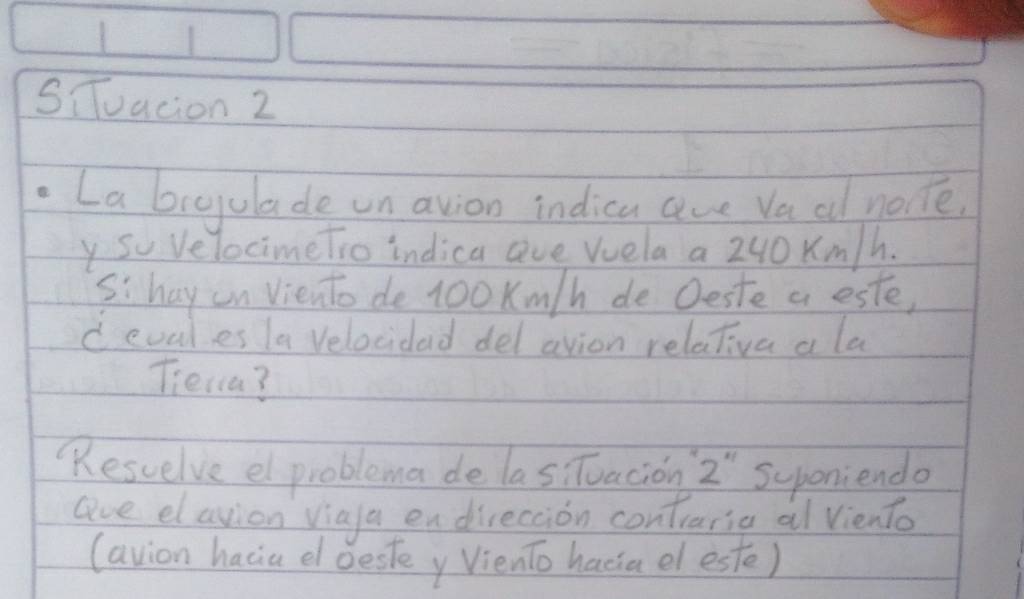 Situacion 2
• La brojula de un avion indica que va al norte,
y su velocimetro indica que vuela a 240 Km/h.
Si hay un viento de 100 Km/h de Oeste a este,
¿cual es la velocidad del avion relativa a la
Tierra?
Resuelve el problema de la situación "2" suponiendo
que el avion viaja en dirección contraria al viento
(avion hacia el oeste y viento hacia el este)